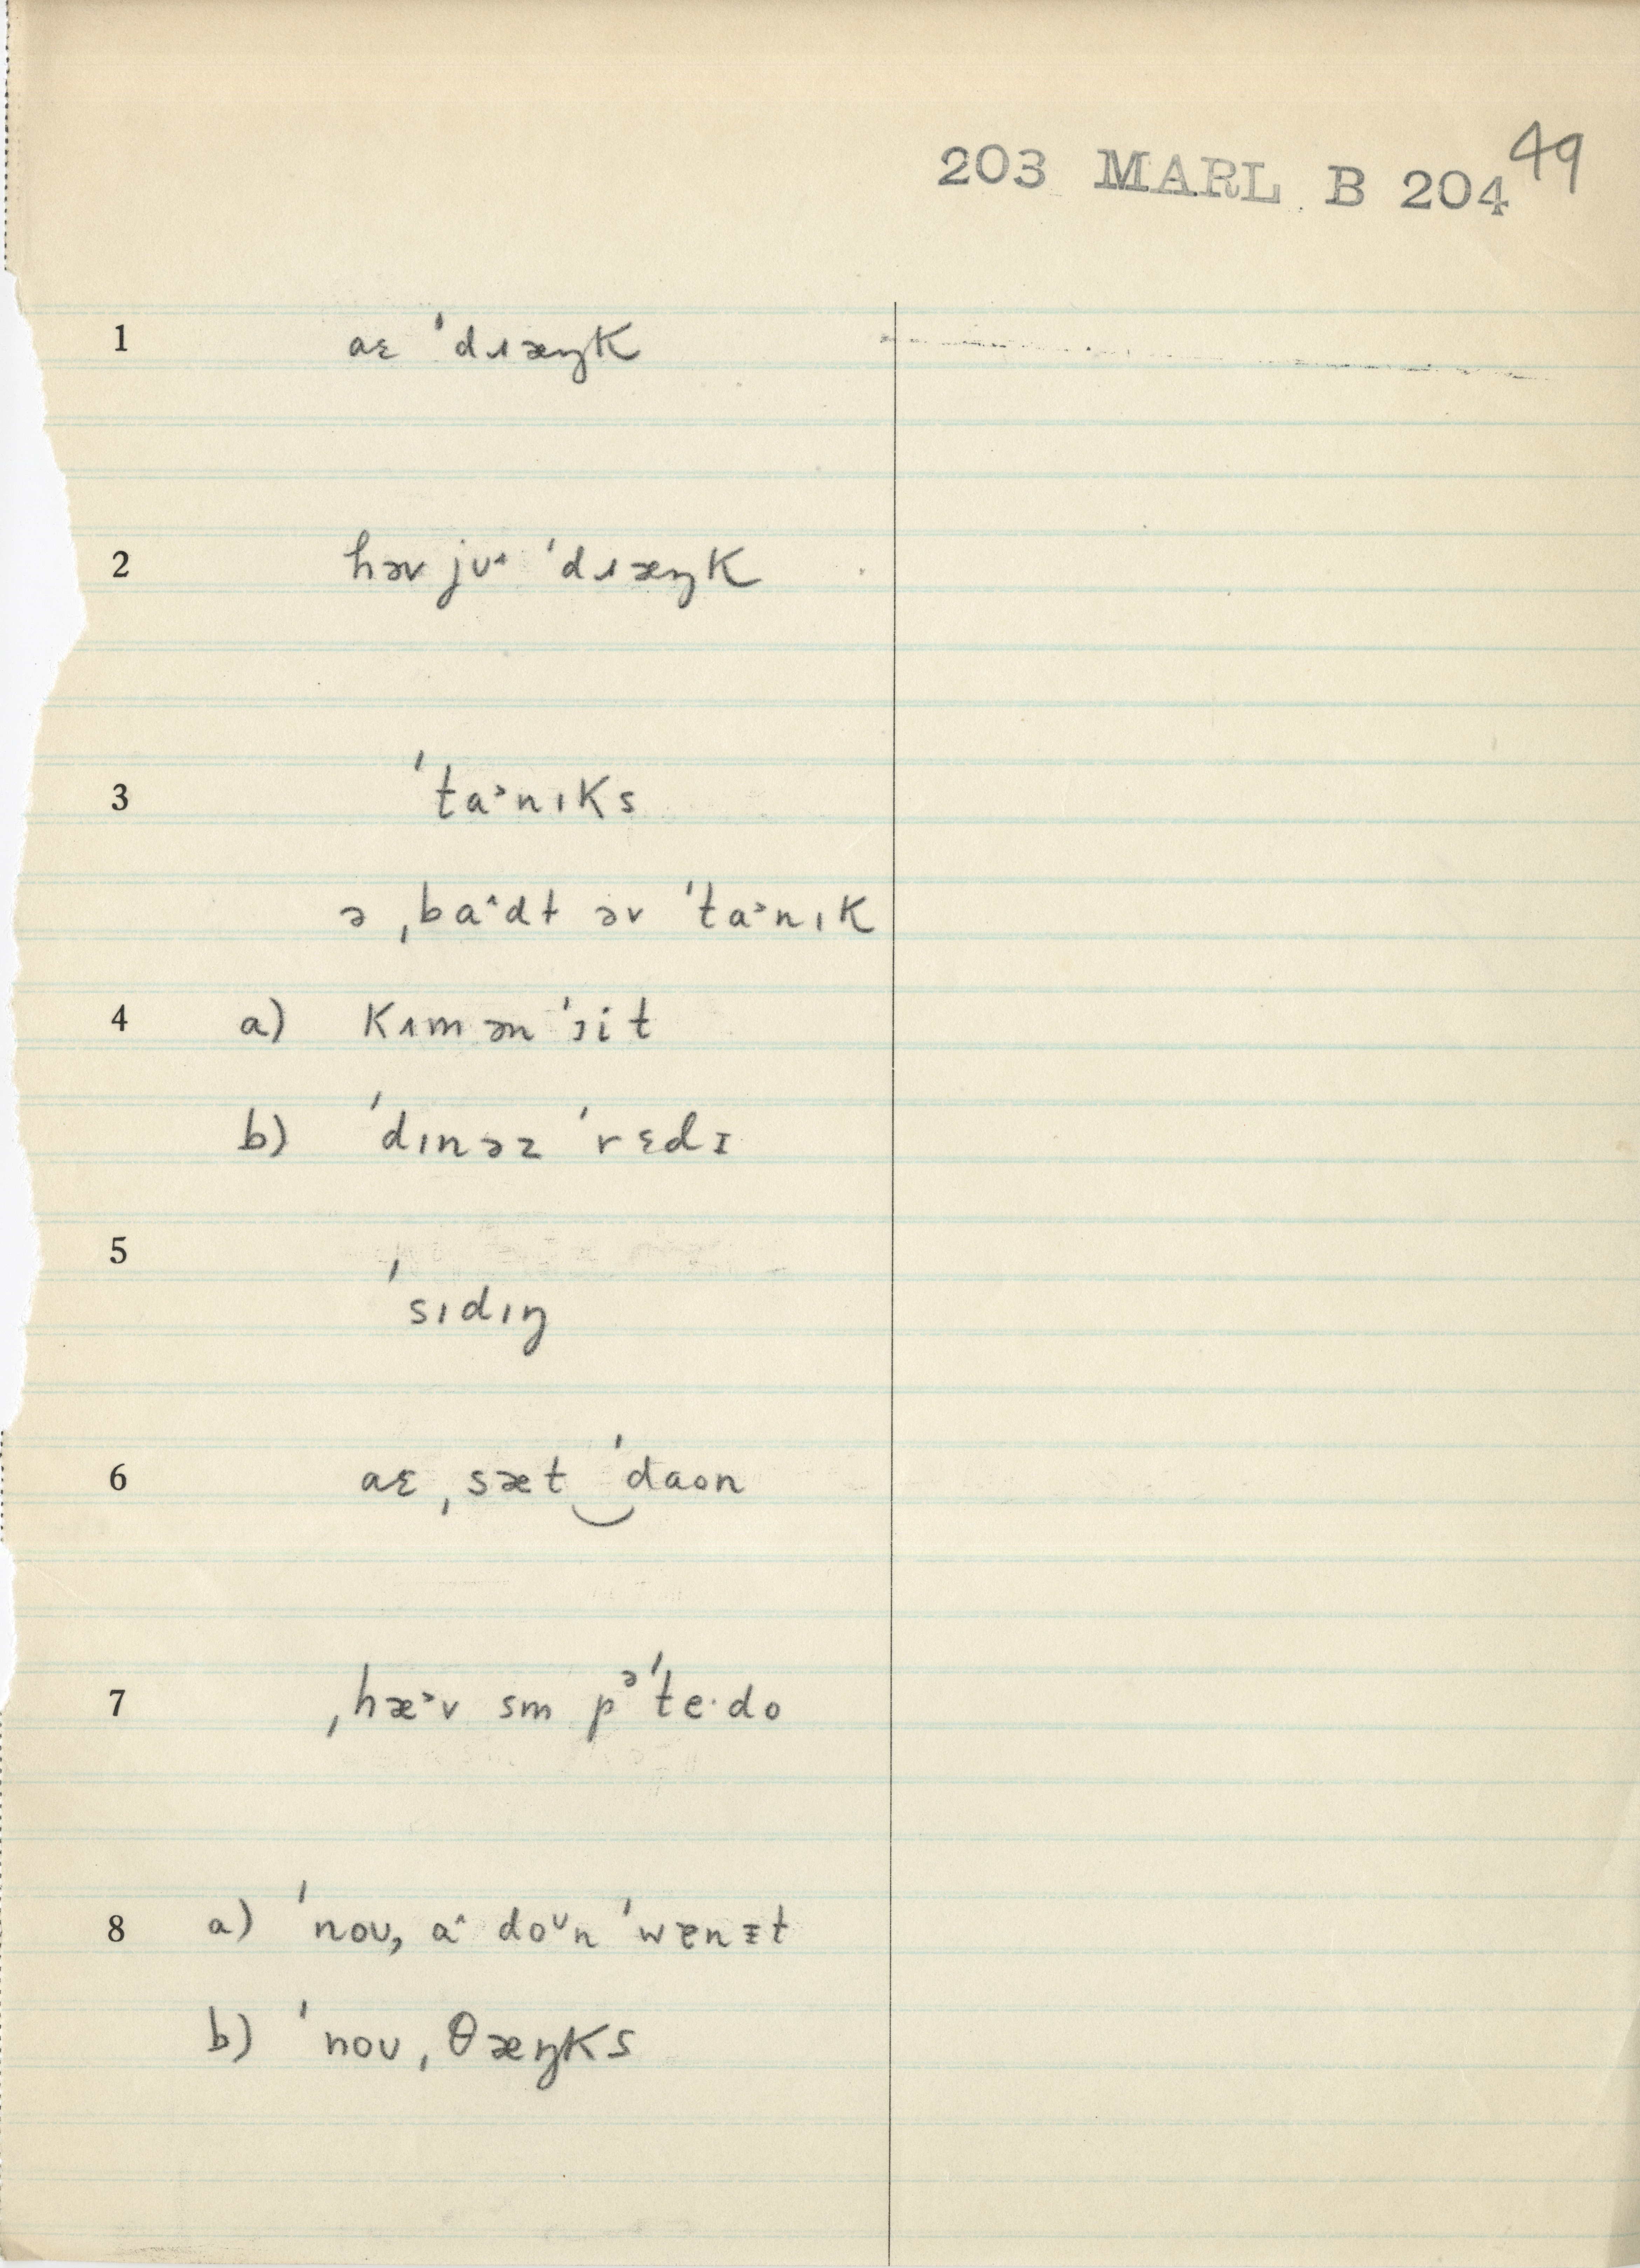 203 MARL B 204 49
1 aɛ 'dɹæŋk
2 həv jʊ˄ 'dɹæŋk
3 'ta˃nɪks
ə ˌba˄dt əv 'ta˃nɪk
4 a) kʌm ən 'ɪit
b) 'dɪnəz 'rɛdɪ
5 'sɪdɪŋ
6 aɛ ˌsæt‿'daon
7 ˌhæ˃v sm pᵊ'te·do
8 a) 'noʊ, a˄ doᶷn 'wɐnɪt
b) 'noʊ, θæŋks